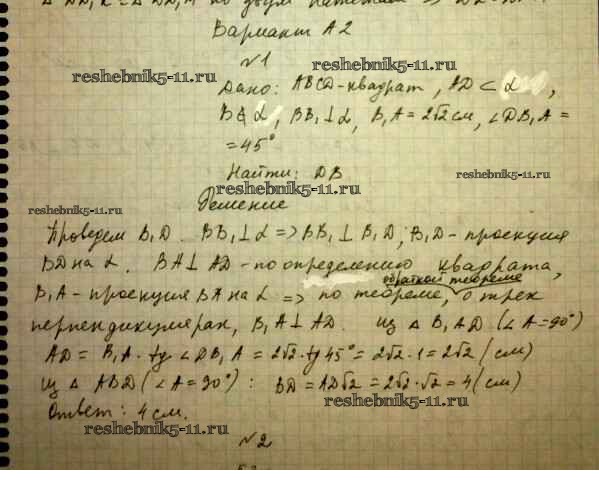 Вариант А2
№1
reshebnik5-11.ru
Дано: ABCD-квадрат, AD ⊂ α,
B∉α, BB₁⊥α, B₁A = 2√2 см, ∠DB₁A =
= 45°
Найти: DB
reshebnik5-11.ru
reshebnik5-11.ru
Решение
reshebnik5-11.ru
Проведем B₁D. BB₁⊥α => BB₁ ⊥ B₁D; B₁D - проекция
BD на α. BA⊥AD - по определению квадрата,
обратной теореме
B₁A - проекция BA на α => по теореме, о трех
перпендикулярах, B₁A⊥AD. Из △ B₁AD (∠A=90°)
AD = B₁A · tg ∠DB₁A = 2√2 · tg 45° = 2√2 · 1 = 2√2 (см)
Из △ ABD (∠A=90°): BD = AD√2 = 2√2·√2 = 4 (см)
Ответ: 4 см.
reshebnik5-11.ru
reshebnik5-11.ru
№2